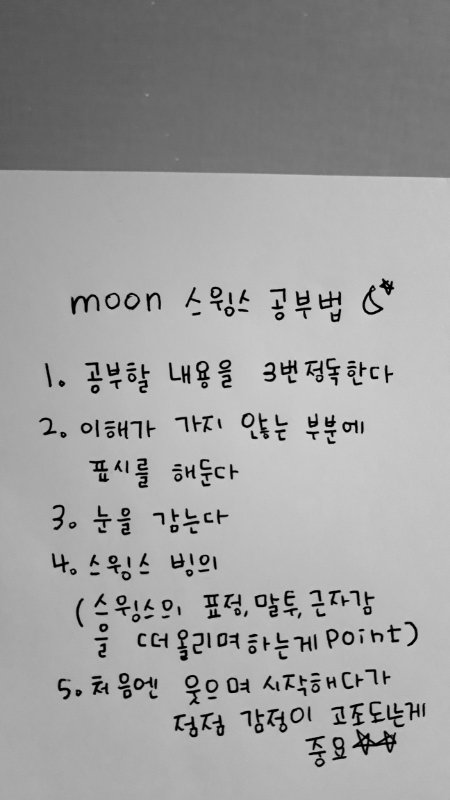 moon 스윙스 공부법
1. 공부할 내용을 3번정독한다
2. 이해가 가지 않는 부분에
표시를 해둔다
3. 눈을 감는다
4. 스윙스 빙의
(스윙스의 표정, 말투, 근자감
을 떠올리며하는게 Point)
5. 처음엔 웃으며 시작해다가
점점 감정이 고조되는게
중요